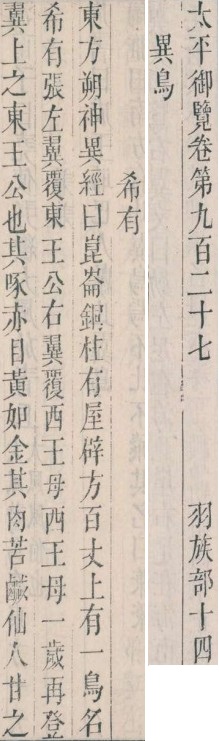 太平御覽卷第九百二十七　羽族部十四
異鳥
希有
東方朔神異經曰崑崙銅柱有屋辟方百丈上有一鳥名
希有張左翼覆東王公右翼覆西王母西王母一歲再登
翼上之東王公也其啄赤目黃如金其肉苦鹹仙人甘之